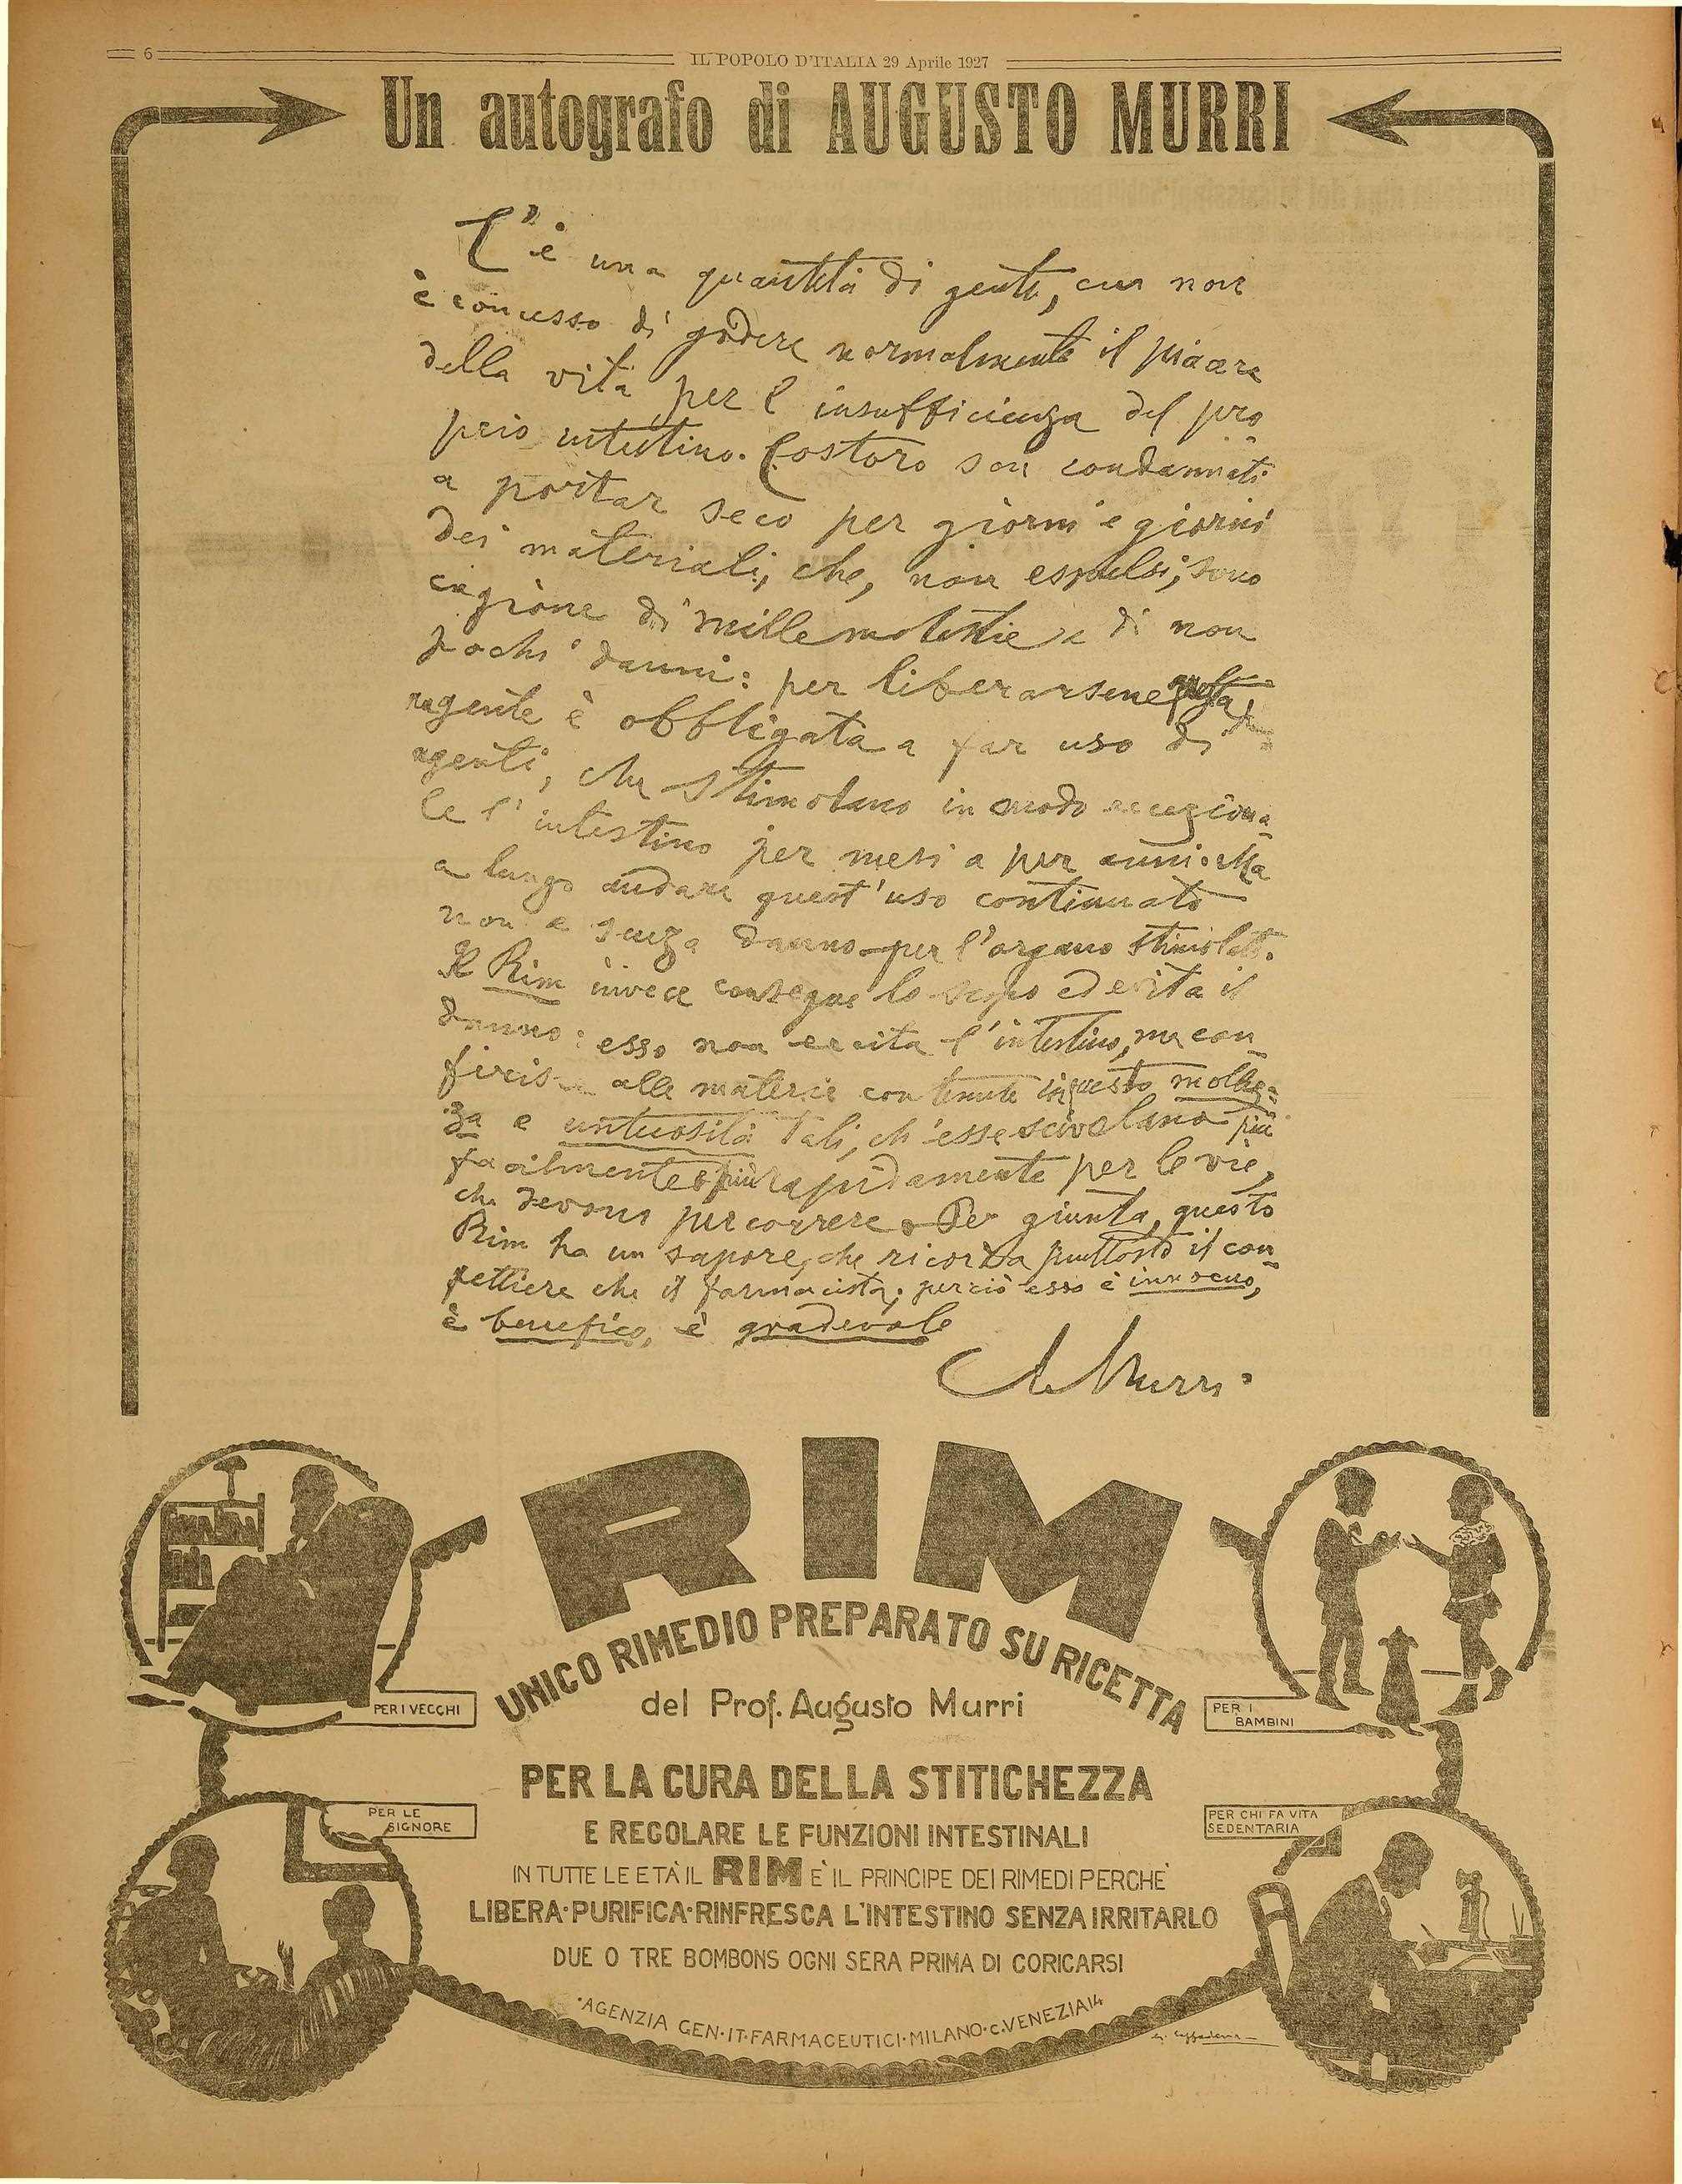 6
IL POPOLO D'ITALIA 29 Aprile 1927
Un autografo di AUGUSTO MURRI
C'è una quantità di gente, cui non
è concesso di godere normalmente il piacere
della vita per l'insufficienza del pro-
prio intestino. Costoro son condannati
a portar seco per giorni e giorni
dei materiali, che, non espulsi, sono
cagione di mille molestie e di non
pochi danni: per liberarsene questa
gente è obbligata a far uso di
agenti, che stimolano in modo ecceziona-
le l'intestino per mesi e per anni. Ma
a lungo andare quest'uso continuato
non è senza danno per l'organo stimolato.
Il Rim invece consegue lo scopo ed evita il
danno: esso non eccita l'intestino, ma con-
ferisce alle materie contenute in questo mollez-
za e untuosità tali, ch'esse scivolano più
facilmente e più rapidamente per le vie,
che devono percorrere. Per giunta, questo
Rim ha un sapore, che ricorda piuttosto il con-
fettiere che il farmacista; perciò esso è innocuo,
è benefico, è gradevole
A. Murri
RIM
UNICO RIMEDIO PREPARATO SU RICETTA
del Prof. Augusto Murri
PER I VECCHI
PER I
BAMBINI
PER LA CURA DELLA STITICHEZZA
PER LE
SIGNORE
PER CHI FA VITA
SEDENTARIA
E REGOLARE LE FUNZIONI INTESTINALI
IN TUTTE LE ETÀ IL RIM E' IL PRINCIPE DEI RIMEDI PERCHE'
LIBERA·PURIFICA·RINFRESCA L'INTESTINO SENZA IRRITARLO
DUE O TRE BOMBONS OGNI SERA PRIMA DI CORICARSI
·AGENZIA GEN·IT·FARMACEUTICI·MILANO·C.VENEZIA 14